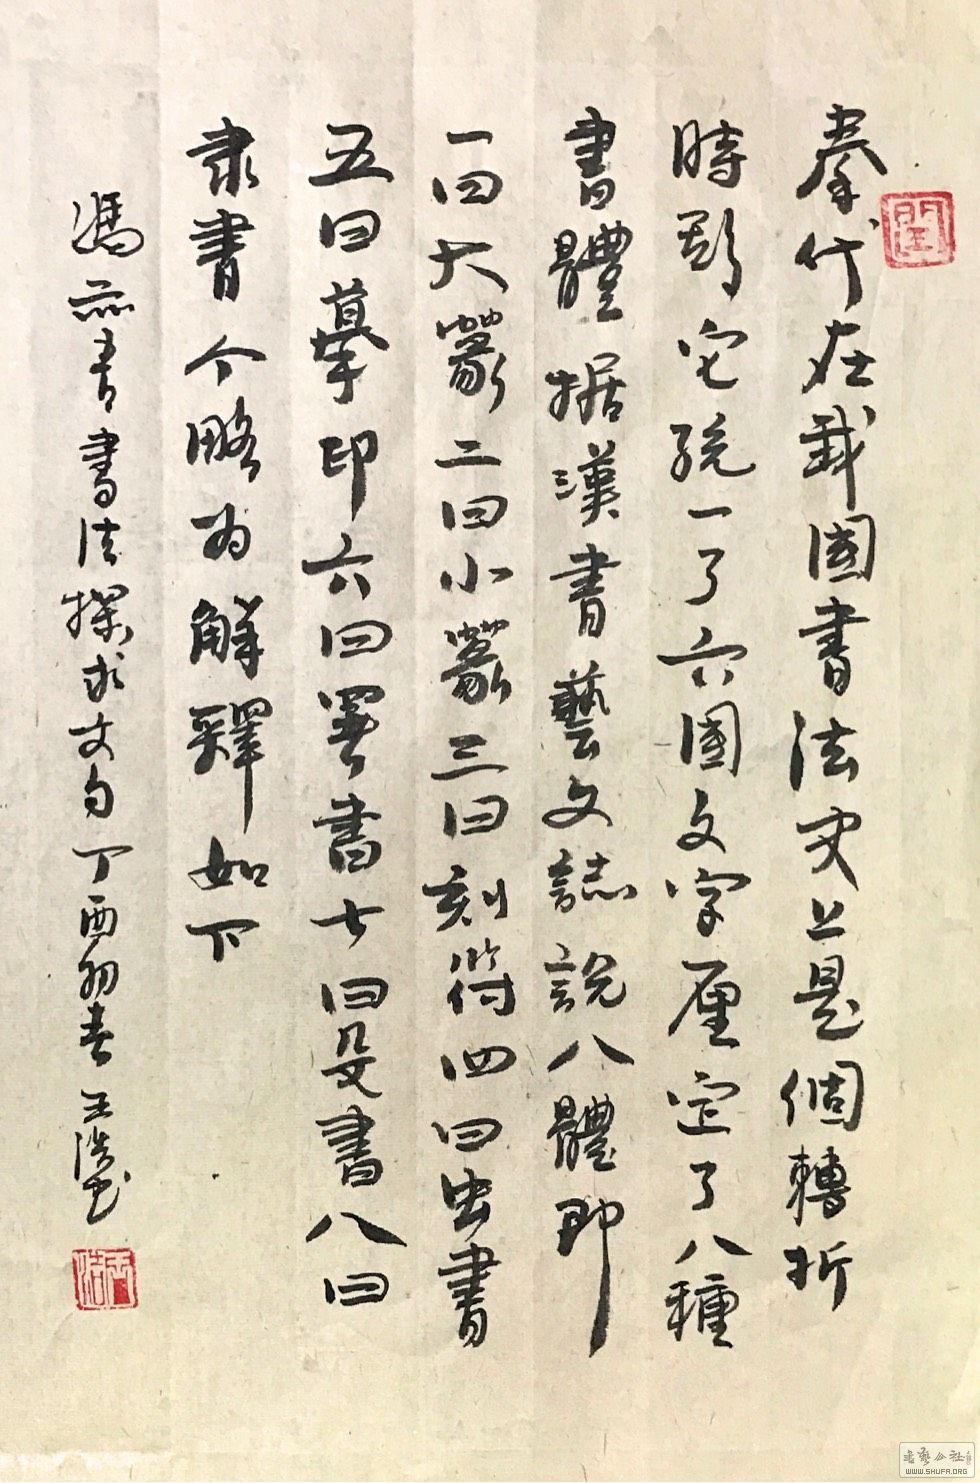 秦代在我國書法史上是個轉折
時期它統一了六國文字厘定了八種
書體据漢書藝文誌說八體即
一曰大篆二曰小篆三曰刻符四曰虫書
五曰摹印六曰署書七曰殳書八曰
隶書今略为解釋如下
馮亦吾書法探求文句丁酉初春王浩书
書藝公社
WWW.SHUFA.ORG